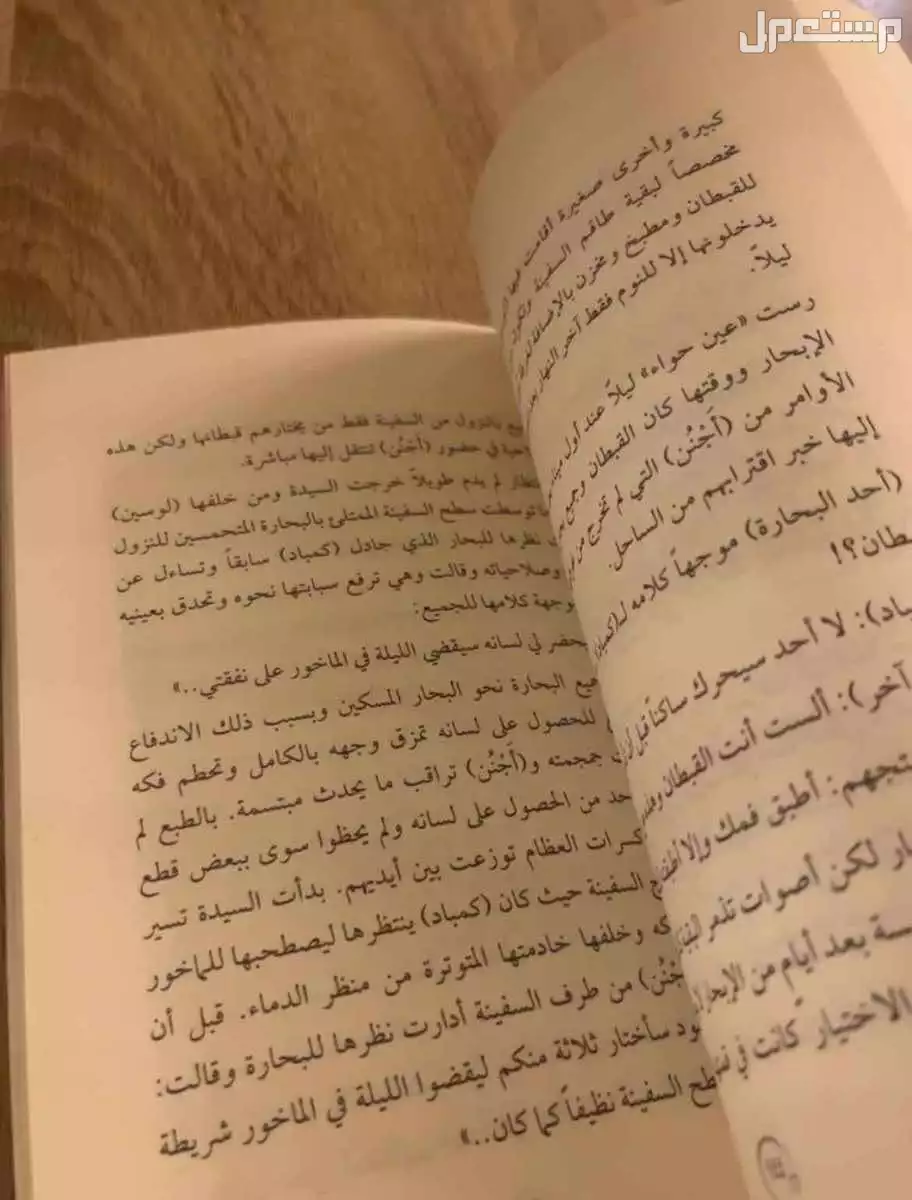 مستعمل
كبيرة وأخرى صغيرة أقامت فيها
مخصصاً لبقية طاقم السفينة
للقبطان ومطبخ ومخزن بالإضافة
يدخلونها إلا للنوم فقط آخر النهار
ليلاً.
رست «عين حواء» ليلاً عند أول
الإبحار ووقتها كان القبطان
الأوامر من (أَجْنُن) التي لم تخرج من
إليها خبر اقترابهم من الساحل.
(أحد البحارة) موجهاً كلامه
طان؟!
باد): لا أحد سيحرك ساكناً قبل
آخر): ألست أنت القبطان
تجهم: أطبق فمك وإلا
ار لكن أصوات تذمر
سة بعد أيام من الإبحار
الاختيار كانت في
ع بالنزول من السفينة فقط من يختارهم قبطانها ولكن هذه
حية في حضور (أَجْنُن) تنتقل إليها مباشرة.
ظار لم يدم طويلاً خرجت السيدة ومن خلفها (لوسين)
ما توسطت سطح السفينة الممتلئ بالبحارة المتحمسين للنزول
نظرها للبحار الذي جادل (كمباد) سابقاً وتساءل عن
وصلاحياته وقالت وهي ترفع سبابتها نحوه وتحدق بعينيه
وجهة كلامها للجميع:
يحضر لي لسانه سيقضي الليلة في الماخور على نفقتي..»
ميع البحارة نحو البحار المسكين وبسبب ذلك الاندفاع
للحصول على لسانه تمزق وجهه بالكامل وتحطم فكه
جمجمته و(أَجْنُن) تراقب ما يحدث مبتسمة. بالطبع لم
حد من الحصول على لسانه ولم يحظوا سوى ببعض قطع
كسرات العظام توزعت بين أيديهم. بدأت السيدة تسير
السفينة حيث كان (كمباد) ينتظرها ليصطحبها للماخور
كه وخلفها خادمتها المتوترة من منظر الدماء. قبل أن
جْنُن) من طرف السفينة أدارت نظرها للبحارة وقالت:
ود سأختار ثلاثة منكم ليقضوا الليلة في الماخور شريطة
طح السفينة نظيفاً كما كان..»